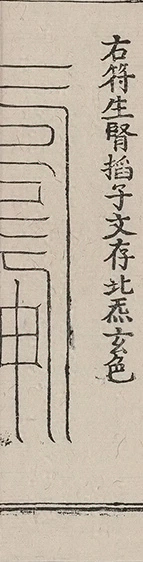 右符生腎搯子文存北炁玄色